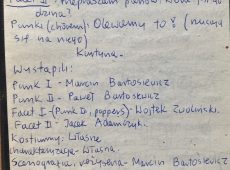 dzina?
Punki (chórem) Olewamy to! (rzucają
się na niego)
Kurtyna.
Wystąpili:
Punk I - Marcin Bartosiewicz
Punk II - Paweł Bartosiewicz
Facet I - (Punk II, poppers) Wojtek Zwoliński.
Facet II - Jacek Adamczyk.
Kostiumy: Własne
charakteryzacja - Własna.
Scenografia i reżyseria - Marcin Bartosiewicz